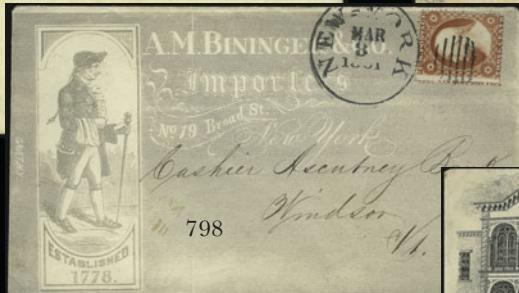 A.M. BININGER & CO.
Importers
No 19 Broad St.
New York
NEW-YORK
MAR
8
1861
Cashier Ascutney B
Windsor
Vt.
798
ESTABLISHED
1778.